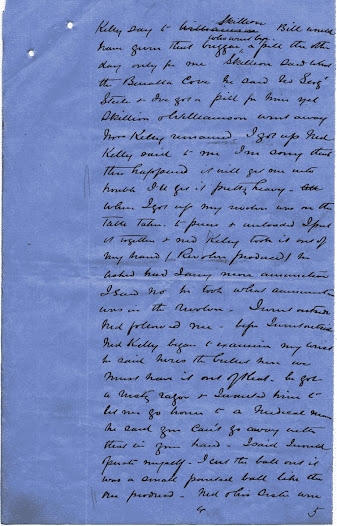 Kelly say to Williamson Skillion Bill would
have given that beggar who went by a pill the other
day only for me Skillion said what
the Benalla Cove he said No Sergt
Steele & I've got a pill for him yet
Skillion & Williamson went away
Mrs Kelly remained I got up Ned
Kelly said to me I'm sorry that
this happened it will get me into
trouble I'll get it pretty heavy
when I got up my revolver was on the
table taken to pieces & unloaded I put
it together & Ned Kelly took it out of
my hand (Revolver produced) he
asked had I any more ammunition
I said no he took what ammunition
was in the revolver I went outside
Ned followed me before I went outside
Ned Kelly began to examine my wrist
he said here's the bullet here we
must have it out of that he got
a rusty razor & I wanted him to
let me go home to a Medical man
he said you can't go away with
that in your hand I said I would
operate myself I cut the ball out it
was a small pointed ball like the
one produced Ned & his sister were
5